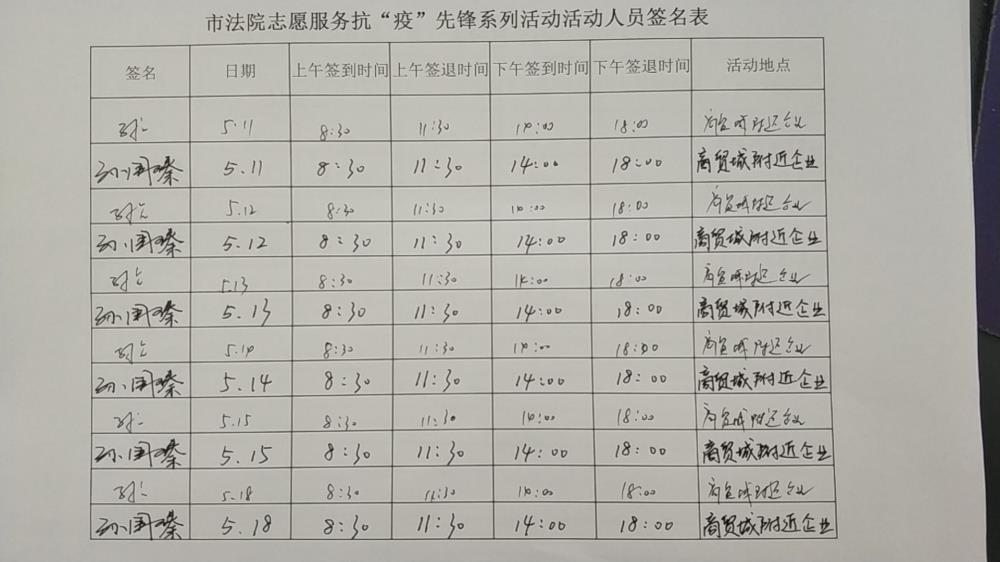 市法院志愿服务抗“疫”先锋系列活动活动人员签名表
签名 日期 上午签到时间 上午签退时间 下午签到时间 下午签退时间 活动地点
5.11 8:30 11:30 14:00 18:00 商贸城附近企业
孙国琴 5.11 8:30 11:30 14:00 18:00 商贸城附近企业
5.12 8:30 11:30 14:00 18:00 商贸城附近企业
孙国琴 5.12 8:30 11:30 14:00 18:00 商贸城附近企业
5.13 8:30 11:30 14:00 18:00 商贸城附近企业
孙国琴 5.13 8:30 11:30 14:00 18:00 商贸城附近企业
5.14 8:30 11:30 14:00 18:00 商贸城附近企业
孙国琴 5.14 8:30 11:30 14:00 18:00 商贸城附近企业
5.15 8:30 11:30 14:00 18:00 商贸城附近企业
孙国琴 5.15 8:30 11:30 14:00 18:00 商贸城附近企业
5.18 8:30 11:30 14:00 18:00 商贸城附近企业
孙国琴 5.18 8:30 11:30 14:00 18:00 商贸城附近企业